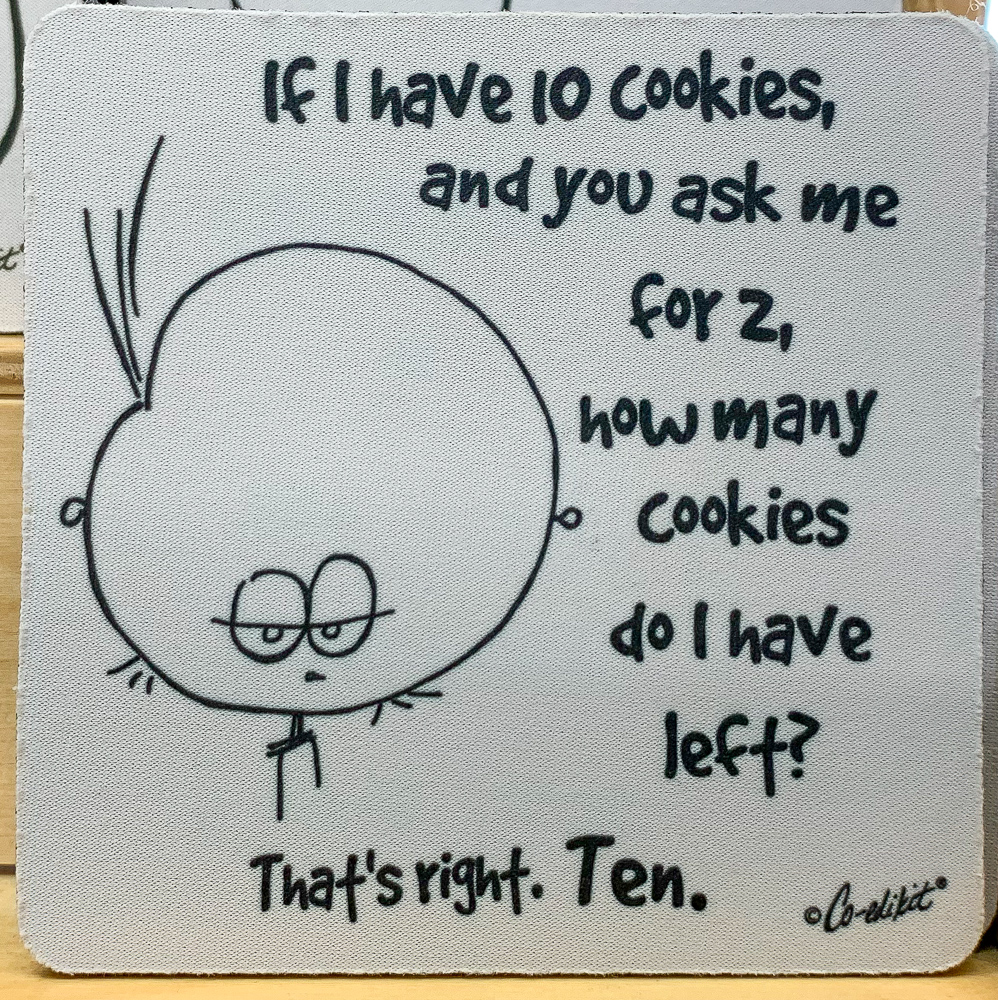 If I have 10 cookies,
and you ask me
for 2,
how many
cookies
do I have
left?
That's right. Ten.
©Co-edikit®